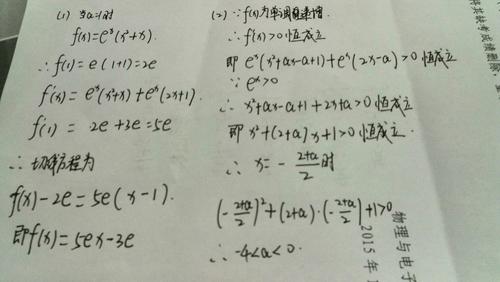 (1) 当a=1时
f(x)=eˣ(x²+x).
∴f(1)=e(1+1)=2e
f'(x)=eˣ(x²+x)+eˣ(2x+1).
f'(1) = 2e+3e=5e
∴ 切线方程为
f(x)-2e=5e(x-1).
即f(x)=5ex-3e
(2) ∵f(x)为单调递增
∴f'(x)>0恒成立
即 eˣ(x²+ax-a+1)+eˣ(2x-a)>0恒成立
∵ eˣ>0
∴ x²+ax-a+1+2x+a>0恒成立
即 x²+(2+a)x+1>0恒成立
∴ x=-(2+a)/2时
(-(2+a)/2)²+(2+a)·(-(2+a)/2)+1>0
∴ -4<a<0.
物理与电子
2015年